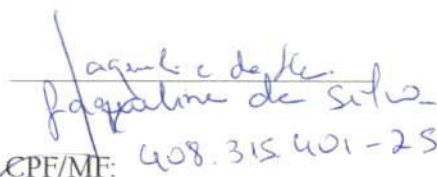 Jaqueline da Silva
CPF/MF: 408.315.401-25